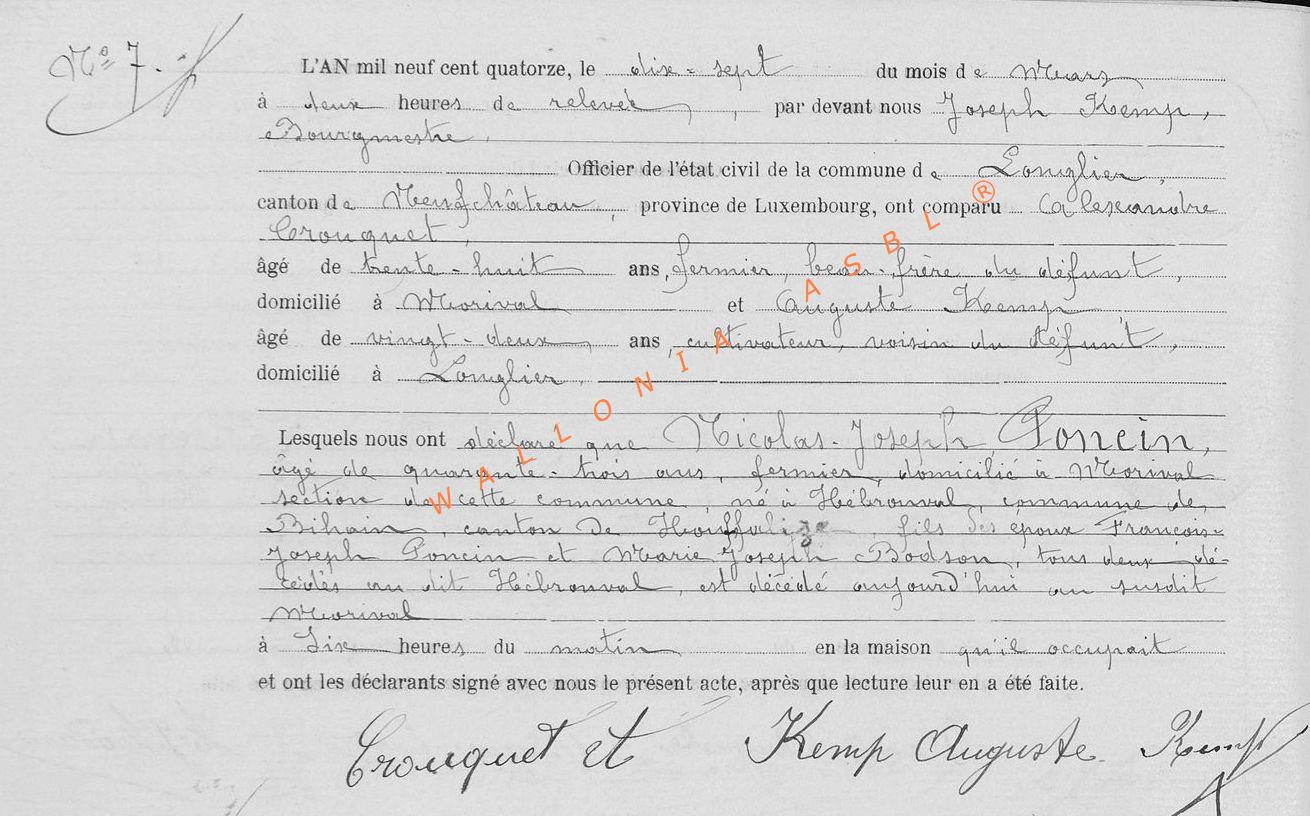 Nº 7.
L'AN mil neuf cent quatorze, le dix-sept du mois de Mars
à deux heures de relevée, par devant nous Joseph Kemp,
Bourgmestre,
Officier de l'état civil de la commune de Longlier,
canton de Neufchâteau, province de Luxembourg, ont comparu Alexandre
Crouquet,
âgé de trente-huit ans, fermier, beau-frère du défunt,
domicilié à Morival et Auguste Kemp
âgé de vingt-deux ans, cultivateur, voisin du défunt,
domicilié à Longlier.
Lesquels nous ont déclaré que Nicolas-Joseph Poncin,
âgé de quarante-trois ans, fermier, domicilié à Morival
section de cette commune, né à Hébronval, commune de
Bihain, canton de Houffalize, fils des époux François-
Joseph Poncin et Marie Joseph Bodson, tous deux dé-
cédés au dit Hébronval, est décédé aujourd'hui au susdit
Morival
à Six heures du matin en la maison qu'il occupait
et ont les déclarants signé avec nous le présent acte, après que lecture leur en a été faite.
Crouquet Kemp Auguste Kemp
WALLONIA ASBL ®